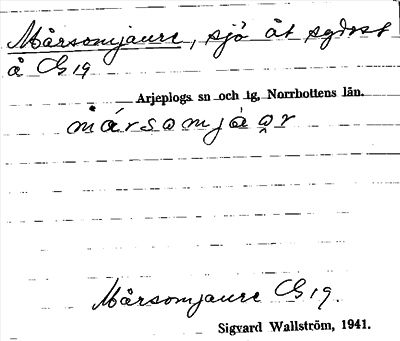 Mårsomjaure, sjö åt sydost
å G 19
Arjeplogs sn och tg, Norrbottens län.
mȧ́rsomjȧ́ a̯r
Mårsomjaure G 19.
Sigvard Wallström, 1941.